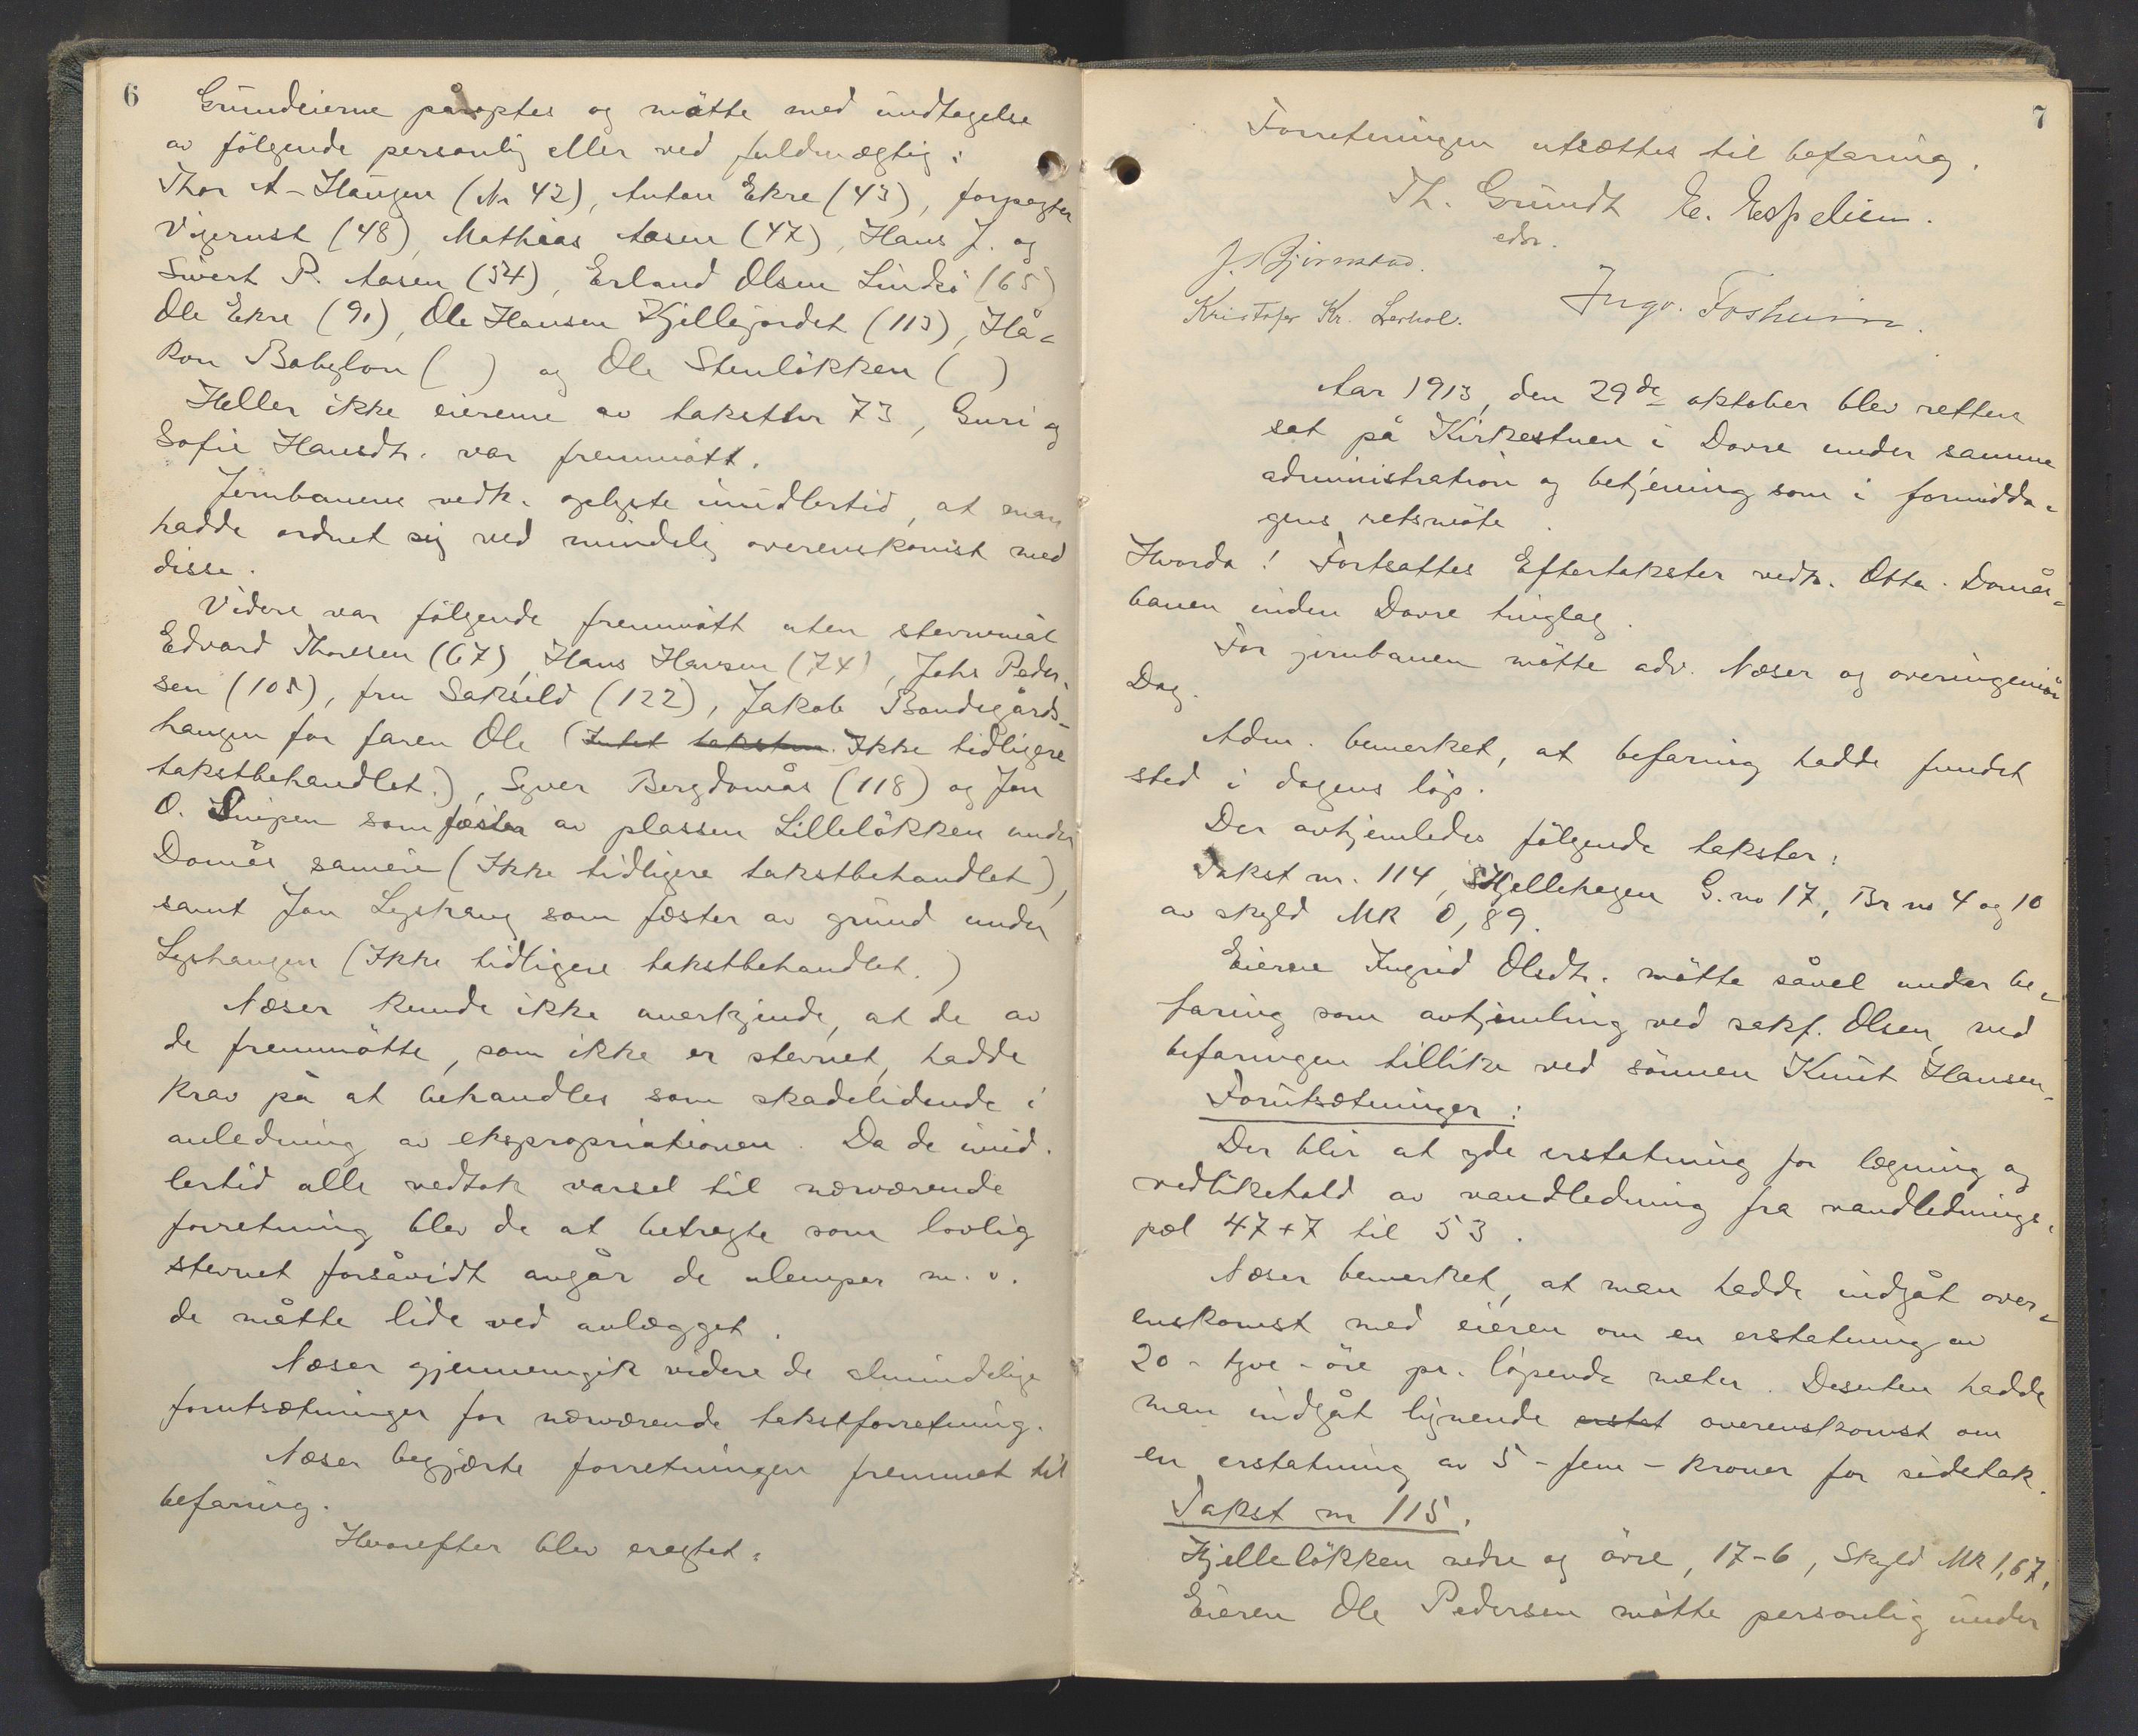 6
Grundeierne påroptes og møtte med undtagelse
av følgende personlig eller ved fuldmægtig:
Thor A-Haugen (Nr 42), Anton Ekre (43), forpagter
Vigerust (48), Mathias Aasen (47), Hans J. og
Sivert P. Aasen (54), Erland Olsen Lindsö (65)
Ole Ekre (91), Ole Hansen Kjellejordet (113), Hå-
kon Babylon ( ) og Ole Stenløkken ( )
Heller ikke eierene av takstnr 73, Guri og
Sofie Hansdtr. var fremmøtt.
Jernbanens vedk. oplyste imidlertid, at man
hadde ordnet sig ved mindelig overenskomst med
disse.
Videre var følgende fremmøtt uten stevnemål
Edvard Thoresen (67), Hans Hansen (74), Johs Peder-
sen (105), fru Saksild (122), Jakob Bondegårds-
haugen for faren Ole (Intet takstnr. Ikke tidligere
takstbehandlet.), Syver Bergdomås (118) og Jon
O. Snipen som fæster av plassen Lilleløkken under
Domås sameie (Ikke tidligere takstbehandlet),
samt Jon Lyshaug som fæster av grund under
Lyshaugen (Ikke tidligere takstbehandlet.)
Næser kunde ikke anerkjende, at de av
de fremmøtte, som ikke er stevnet, hadde
krav på at behandles som skadelidende i
anledning av ekspropriationen. Da de imid-
lertid alle vedtok varsel til nærværende
forretning blev de at betragte som lovlig
stevnet forsåvidt angår de ulemper m.v.
de måtte lide ved anlægget.
Næser gjennemgik videre de almindelige
forutsætninger for nærværende takstforretning.
Næser begjærte forretningen fremmet til
befaring.
Hvorefter blev eragtet:
7
Forretningen utsættes til befaring.
Th. Grundt E. Espelien.
edsv.
J. Bjørnstad.
Kristofer Kr. Lerhol. Ingv. Tosheim.
Aar 1913, den 29de oktober blev retten
sat på Kirkestuen i Dovre under samme
administration og betjening som i formidda-
gens retsmøte.
Hvorda! Fortsattes Eftertakster vedk. Otta-Domås-
banen inden Dovre tinglag.
For jernbanen møtte adv. Næser og overingeniør
Dag.
Adm. bemerket, at befaring hadde fundet
sted i dagens løp.
Der avhjemledes følgende takster:
Takst nr. 114, Hjellehagen G. no 17, Br no 4 og 10
av skyld Mk 0,89.
Eieren Ingrid Olsdtr. møtte såvel under be-
faring som avhjemling ved sakf. Olsen, ved
befaringen tillike ved sønnen Knut Hansen.
Forutsætninger:
Der blir at yde erstatning for lægning og
vedlikehold av vandledning fra vandlednings-
pæl 47+7 til 53.
Næser bemerket, at man hadde indgåt over-
enskomst med eieren om en erstatning av
20 - tyve - øre pr. løpende meter. Desuten hadde
man indgåt lignende erstat overenskomst om
en erstatning av 5 - fem - kroner for sidetak.
Takst nr 115.
Hjelleløkken nedre og øvre, 17-6, Skyld Mk 1,67,
Eieren Ole Pedersen møtte personlig under